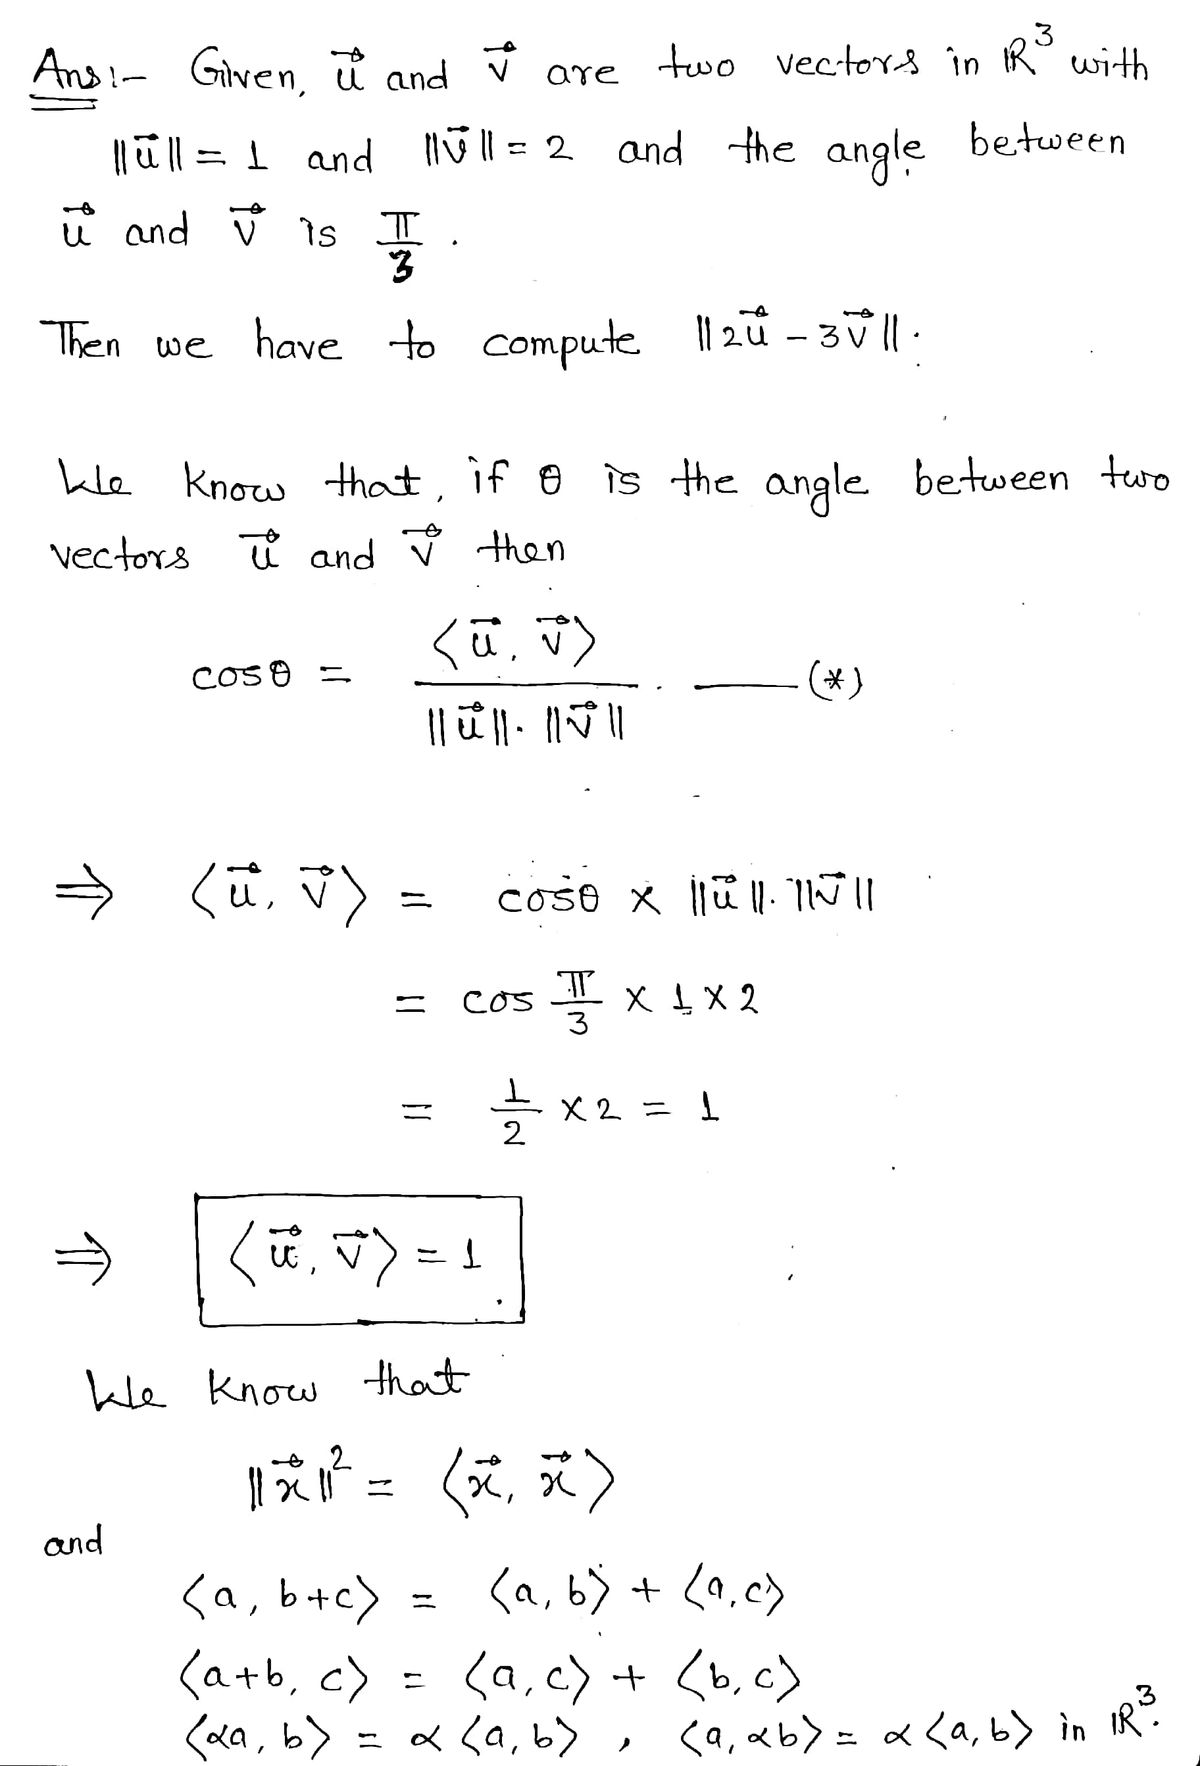 Ans:- Given, u⃗ and v⃗ are two vectors in ℝ³ with
||u⃗|| = 1 and ||v⃗|| = 2 and the angle between
u⃗ and v⃗ is π/3 .
Then we have to compute ||2u⃗ - 3v⃗||.
We know that, if θ is the angle between two
vectors u⃗ and v⃗ then
cosθ = ⟨u⃗, v⃗⟩ / ||u⃗||·||v⃗|| . —— (*)
⇒ ⟨u⃗, v⃗⟩ = cosθ × ||u⃗||·||v⃗||
= cos π/3 × 1 × 2
= 1/2 × 2 = 1
⇒ ⟨u⃗, v⃗⟩ = 1
We know that
||x⃗||² = ⟨x⃗, x⃗⟩
and
⟨a, b+c⟩ = ⟨a, b⟩ + ⟨a, c⟩
⟨a+b, c⟩ = ⟨a, c⟩ + ⟨b, c⟩
⟨αa, b⟩ = α⟨a, b⟩ , ⟨a, αb⟩ = α⟨a, b⟩ in ℝ³.